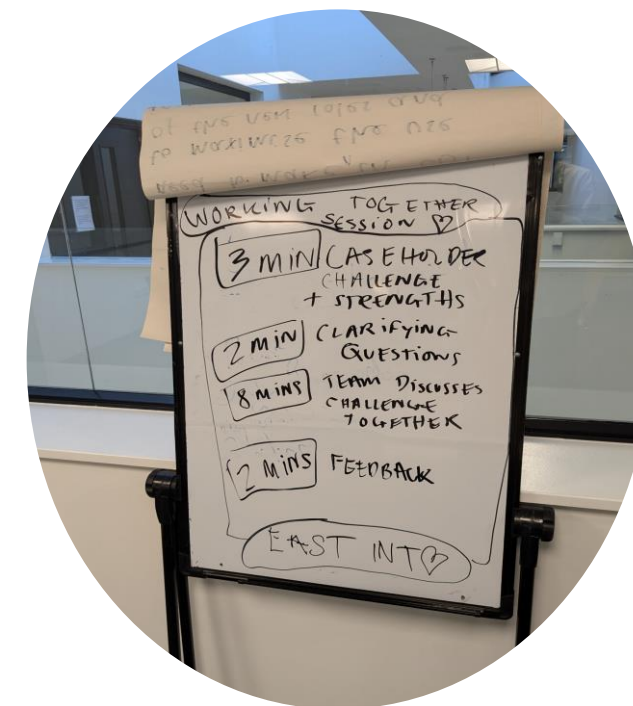 to
WORKING TOGETHER
SESSION
3 MIN CASEHOLDER
CHALLENGE
+ STRENGTHS
2 MIN CLARIFYING
QUESTIONS
8 MINS TEAM DISCUSSES
CHALLENGE
TOGETHER
2 MINS FEEDBACK
EAST INT